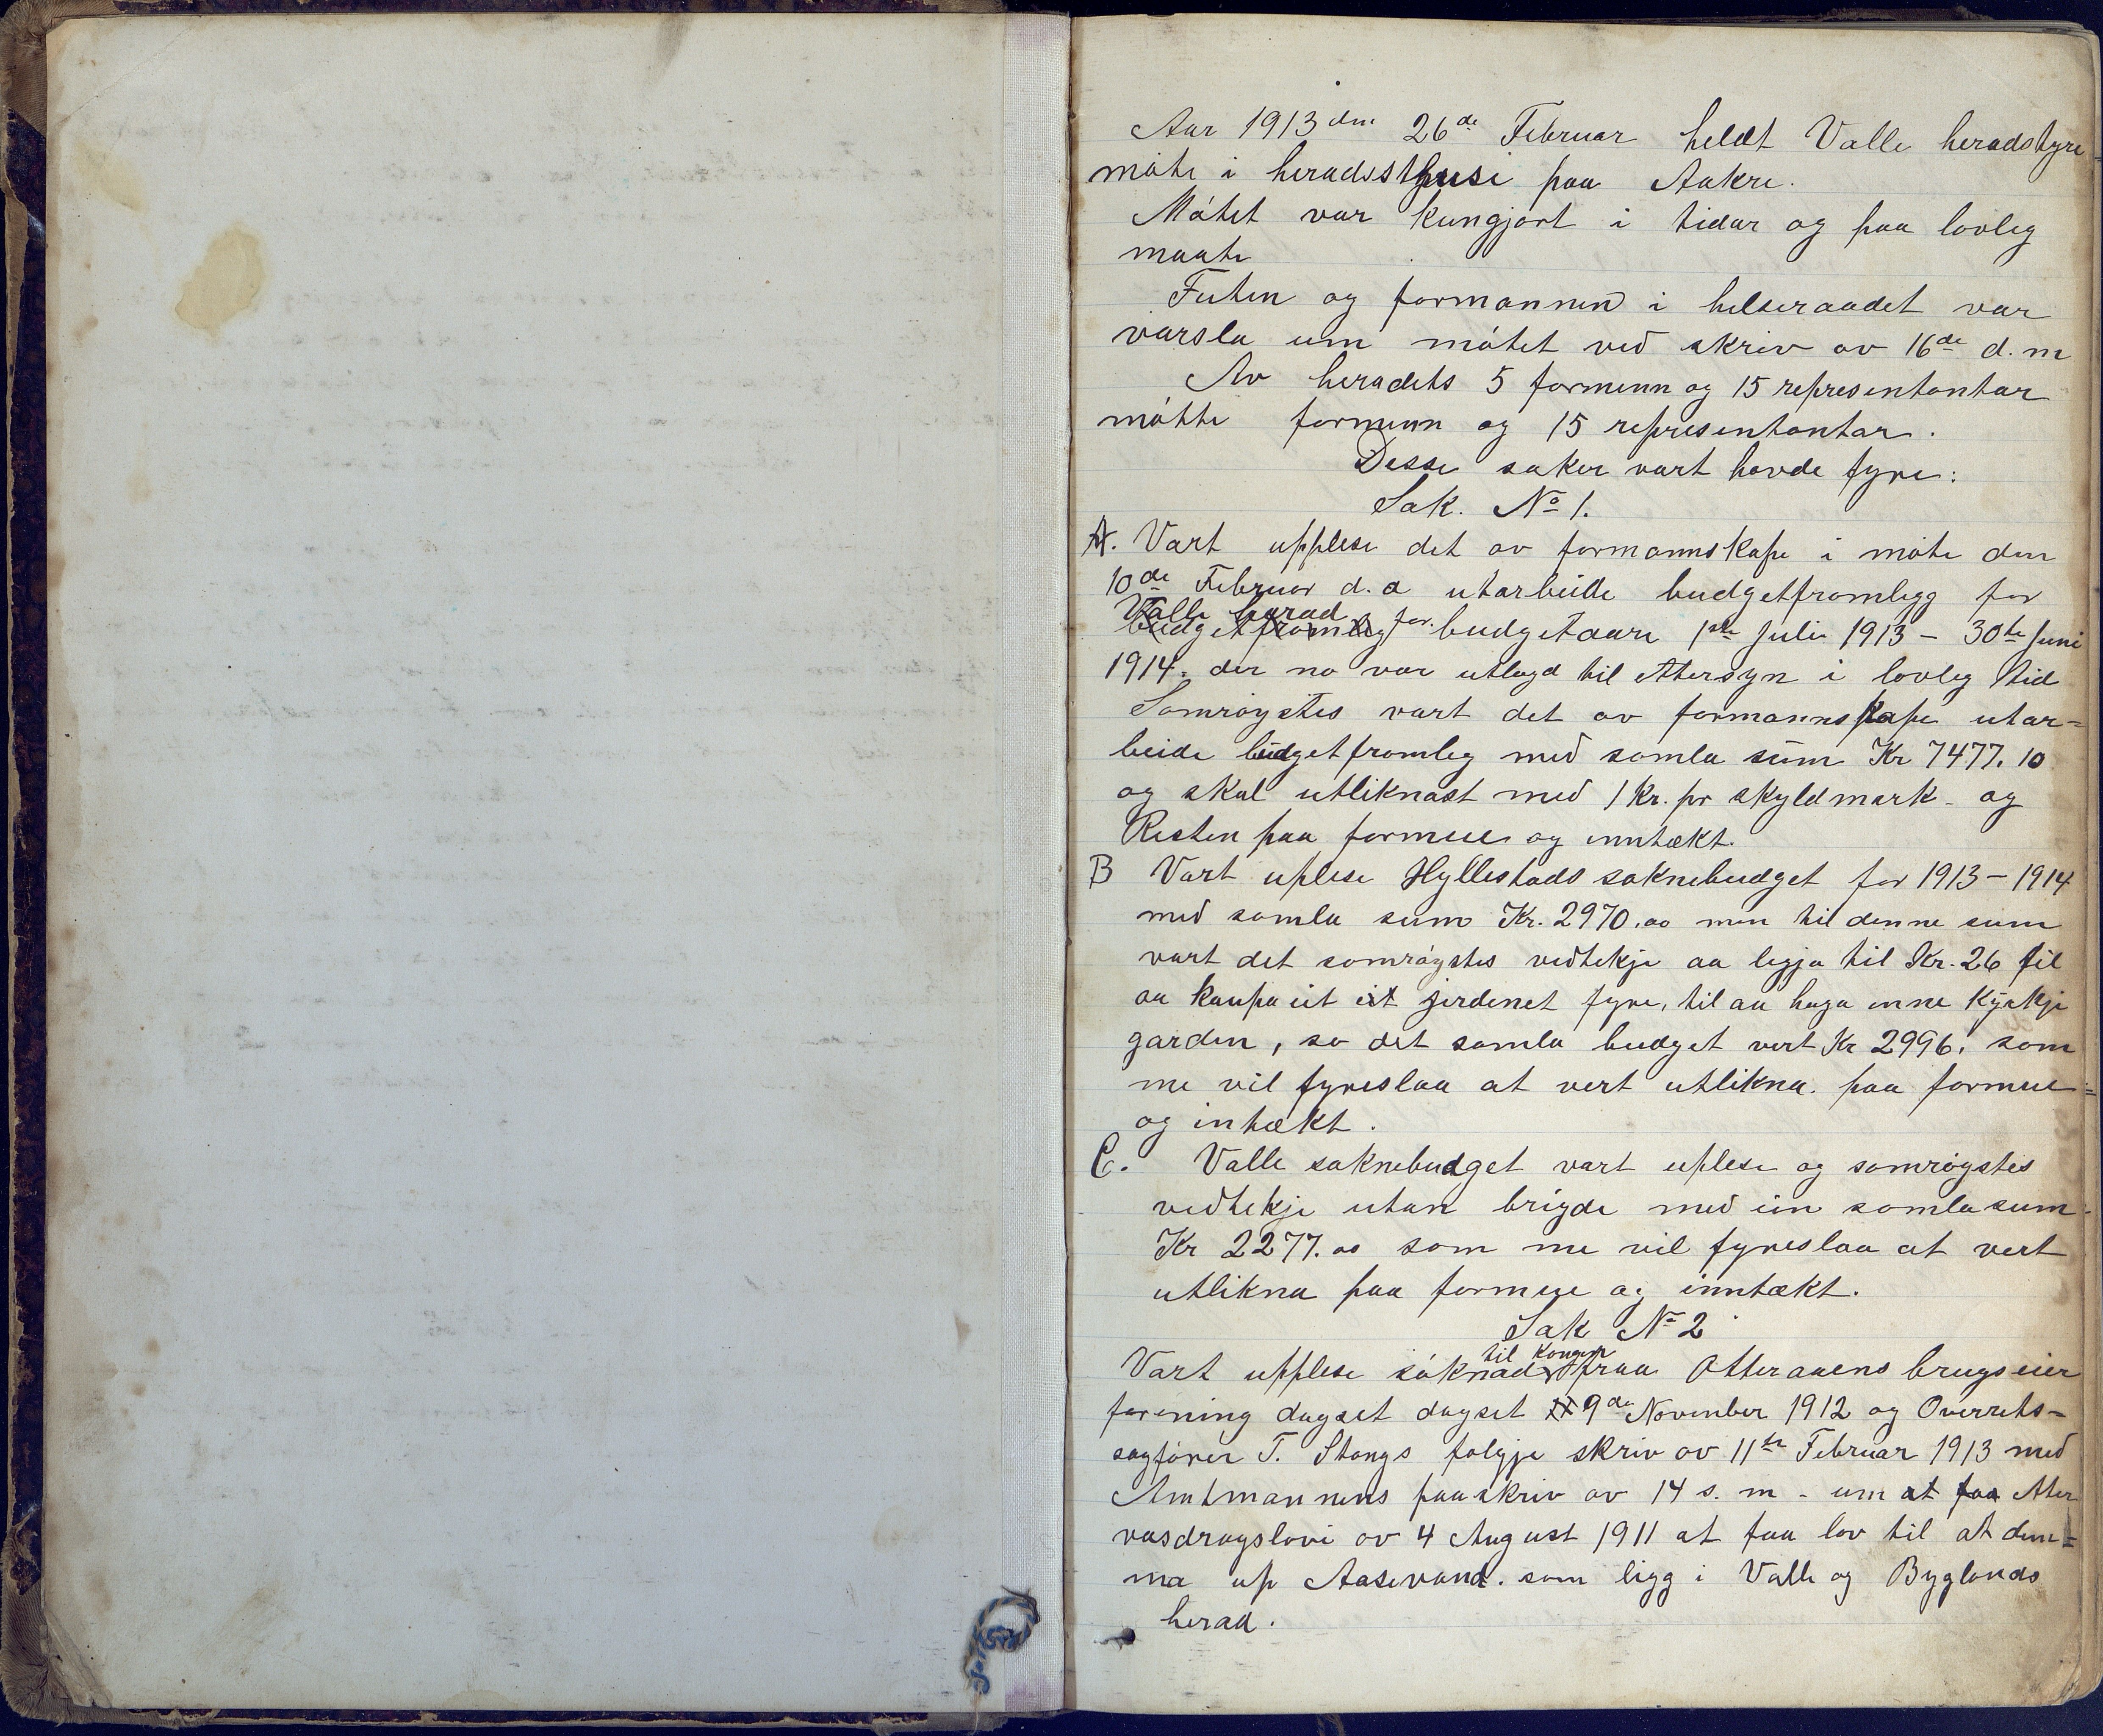 Aar 1913 den 26de Februar heldt Valle heradstyre
møte i heradssthusi paa Aakre.
Møtet var kungjort i tidar og paa lovleg
maate
Futen og formannen i helseraadet var
varsla um møtet ved skriv av 16de d.m
Av heradets 5 formenn og 15 representantar
møtte formenn og 15 representantar.
Desse saker vart havde fyre:
Sak. No 1.
A. Vart upplese det av formannskape i møte den
10de Februar d.a utarbeide budgetframlegg for
Valle herad
budgetframleg for budgetaare 1ste Juli 1913 – 30te Juni
1914. der no var utlagd til Atersyn i lovleg tid
Samrøystes vart det av formannskape utar=
beide budgetframleg med samla sum Kr 7477.10
og skal utliknast med 1 Kr. pr skyldmark – og
Resten paa formue og inntækt.
B Vart uplese Hyllestads soknebudget for 1913 – 1914
med samla sum Kr. 2970.00 men til denne sum
vart det samrøystes vedtekje aa legja til Kr. 26 til
aa kaupa eit eit jerdenet fyre, til aa haga inne Kyrkje
garden, so det samla budget vert Kr 2996. som
me vil fyreslaa at vert utlikna. paa formue=
og intækt.
C. Valle soknebudget vart uplese og samrøystes
vedtekje utan brigde med ein samla sum
Kr 2277.00 som me vil fyreslaa at vert
utlikna paa formue og inntækt.
Sak No 2
til Kongen
Vart upplese søknad fraa Otteraaens brugseier
forening dagset dagset 9de November 1912 og Overrets-
sagfører T. Stangs følgje skriv av 11te Februar 1913 med
Amtmannens paaskriv av 14 s. m – um at faa Etter
vasdragslovi av 4 August 1911 at faa lov til at dem=
ma up Aasevand. som ligg i Valle og Byglands
herad.